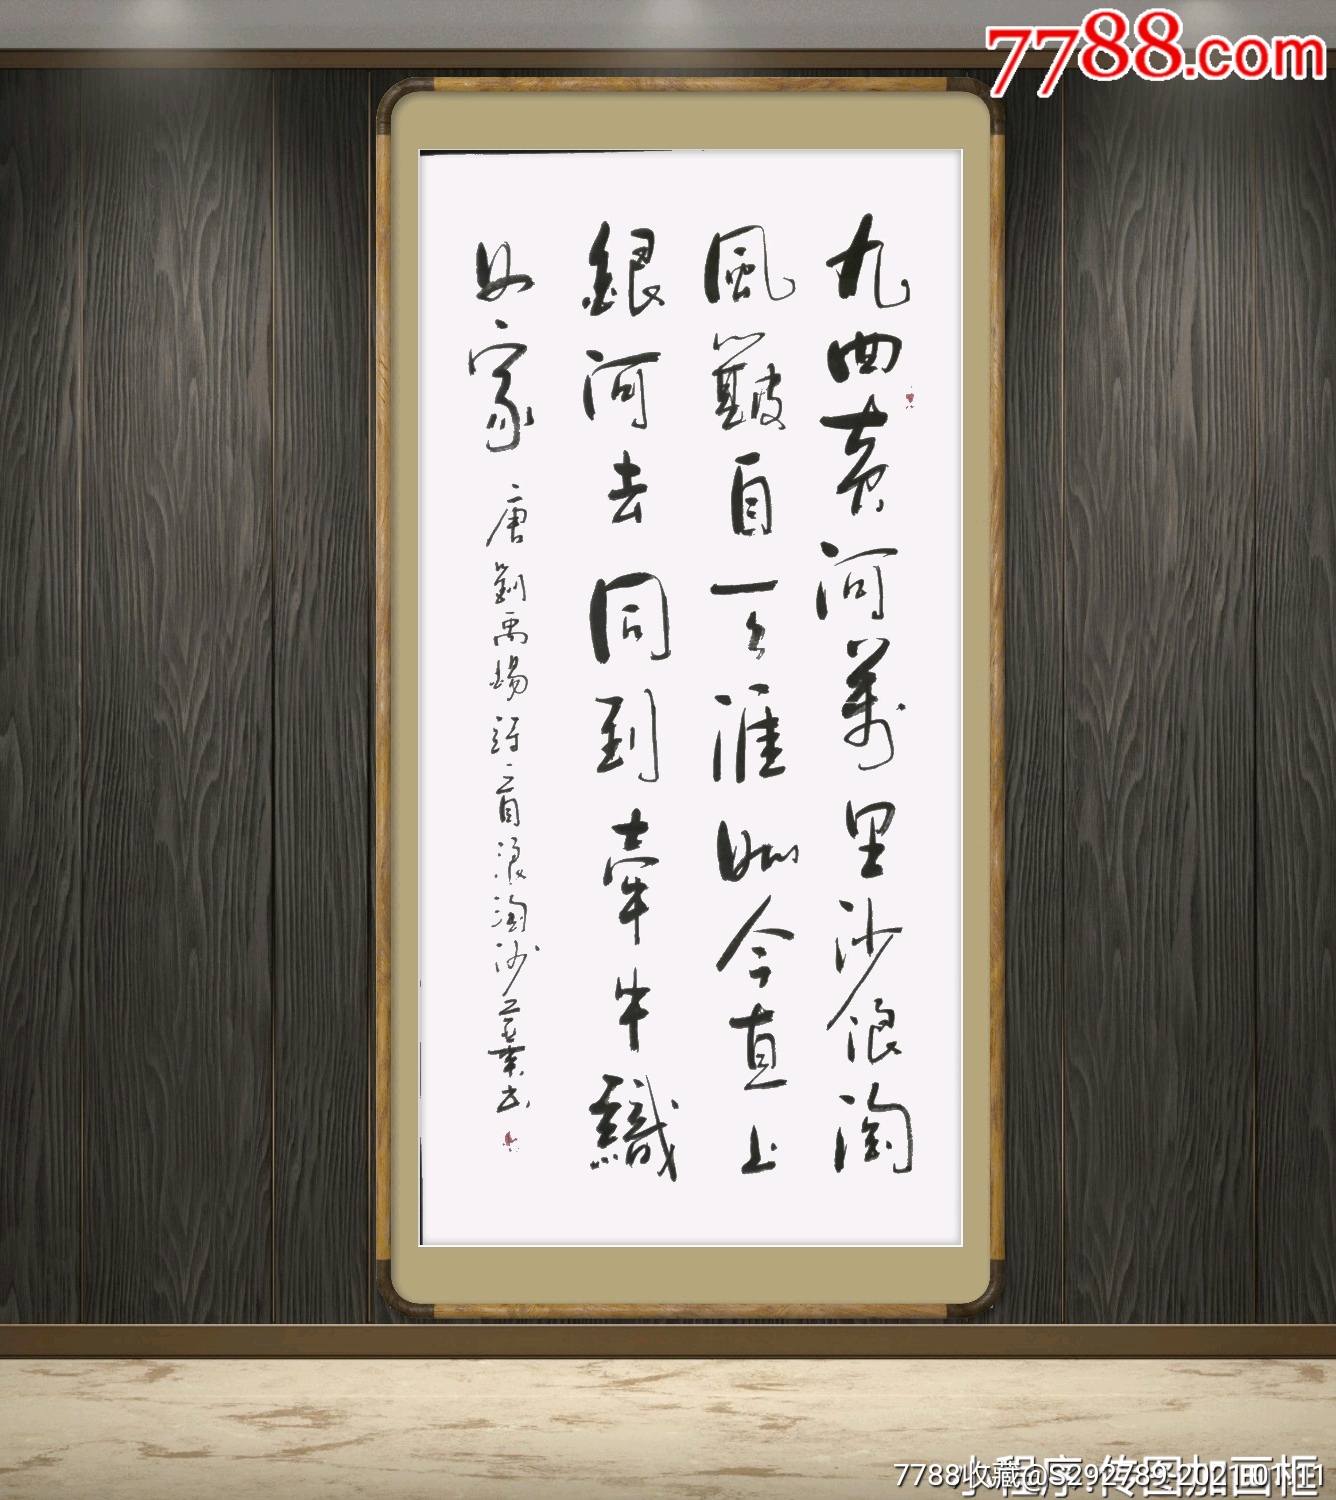 7788.com
九曲黄河萬里沙浪淘
風簸自天涯如今直上
銀河去同到牽牛織
女家
唐劉禹錫詩一首浪淘沙葉书
小程序:传图加画框